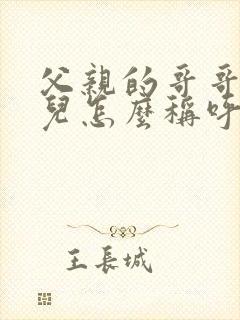 父親的哥哥
兒怎麼稱呼
王長城